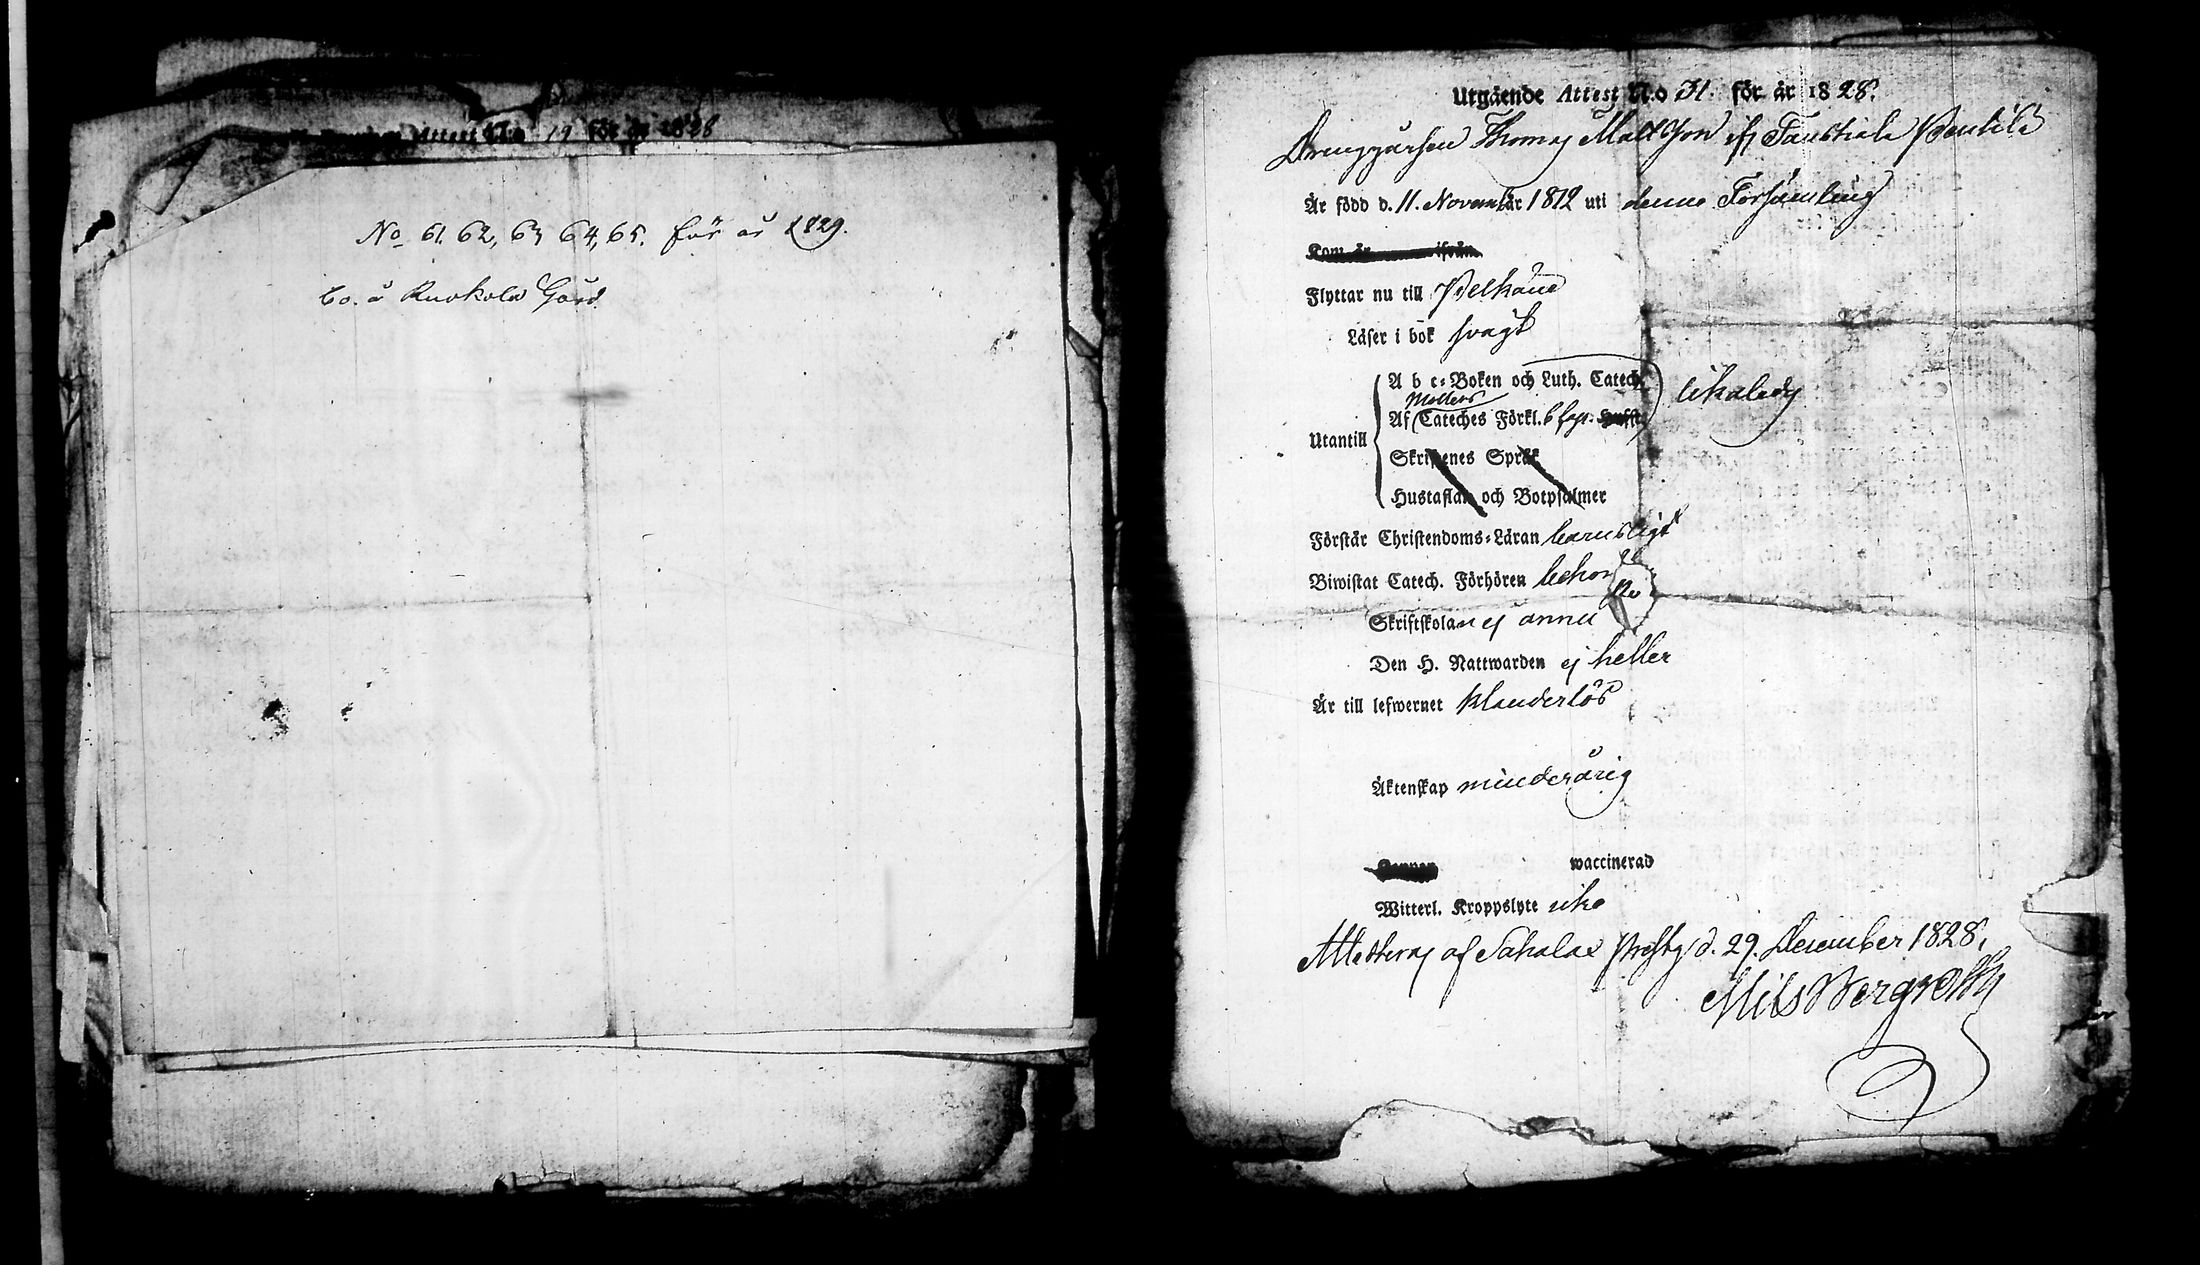 Attest No 19 för år 1828
No 61. 62, 63 64, 65. för år 1829.
bo. å Ruokola Gård
Utgående Attest No 31. för år 1828.
Drenggårsen Thomas Matts Son ifr Penttilä
Är född d. 11. Novemb. år 1812 uti denne Församling
Kom år ifrån
Flyttar nu till Pelkäne
Läser i bok svagt
A b c=Boken och Luth. Catech.
Möllers
Af Cateches Förkl. 6 cap.
likaledes
Utantill
Skriftenes Språk
Hustaflan och Botpsalmer
Förstår Christendoms=Läran barnsligt
Biwistat Catech. Förhören
Skriftskolan ej ännu
Den H. Nattwarden ej heller
Är till lefwernet klanderlös
Äktenskap minderårig
waccinerad
Witterl. Kroppslyte icke
Attesteras af Sahalax d. 29. December 1828.
Nils Bergroth